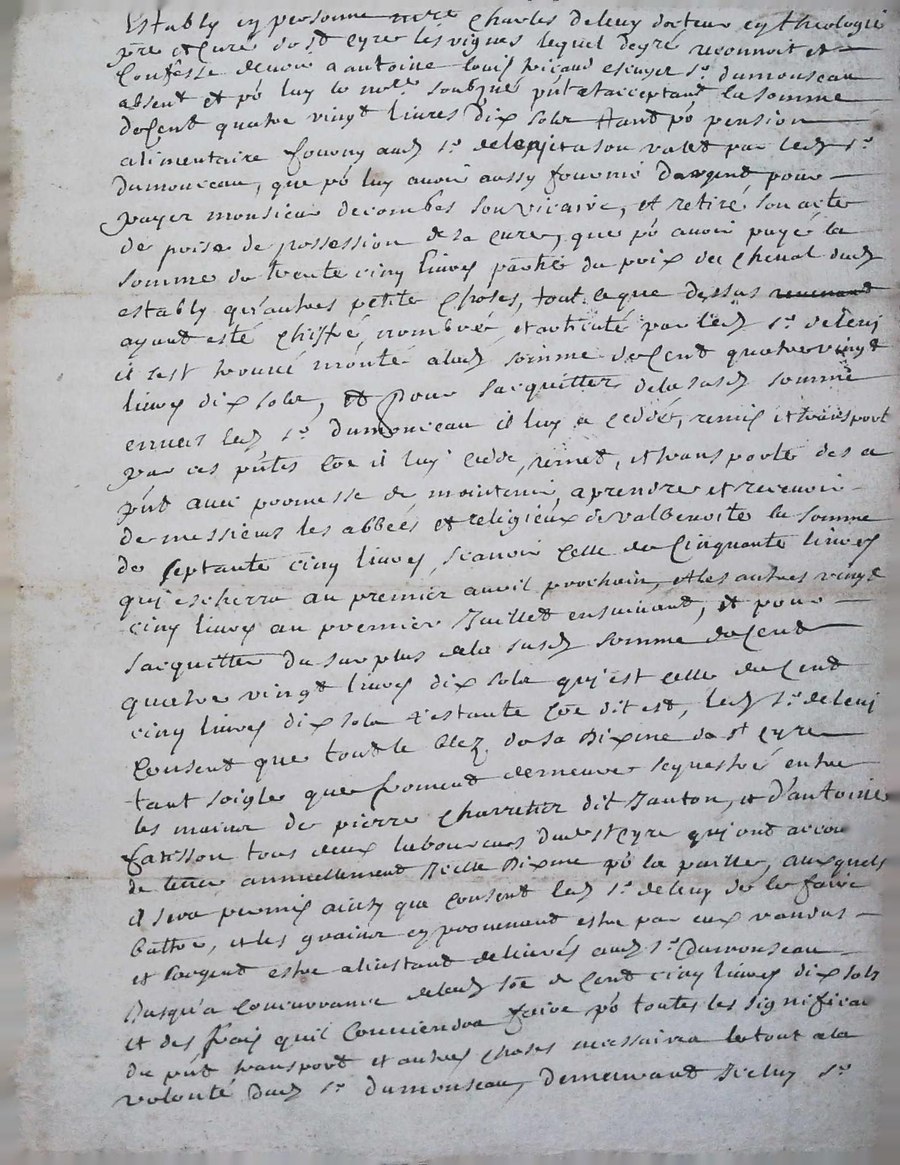 Estably en personne mre Charles deleuy docteur en theologie
pre et curé de st Cyre les vignes lequel degré reconnoit et
Confesse devoir a antoine louis picaud escuyer sr dumonseau
absent et po luy le nore soubzné pnt et acceptant la somme
de Cent quatre vingt livres dix sols tant po pension
alimentaire fourny aud sr deleuy et a son valet par led sr
Dumonceau, que po luy avoir aussy fournie dargent pour
payer monsieur decombes son vicaire, et retiré son acte
de prise de possession de sa cure, que po avoir payé la
somme de trente cinq livres partie du prix du cheval dud
estably qu'autres petite choses, tout ce que dessus
ayant esté chiffré, nombré et articulé par led sr deleuy
il s'est trouvé monté alad somme de Cent quatre vingt
livres dix sols, et pour sacquitter de la susd somme
envers led sr Dumonceau il luy a ceddé, remis et transport
par ces pntes Coe il luy cedde, remet, et transporte des a
pnt avec promesse de maintenir, a prendre et recevoir
de messieurs les abbés et religieux de valbenoite la somme
de septante cinq livres, scavoir celle de Cinquante livres
qui escherra au premier avril prochain, et les autres vingt
cinq livres au premier Juillet ensuivant, et pour
sacquitter du surplus de la susd somme de Cent
quatre vingt livres dix sols qui est celle de Cent
cinq livres dix sols restante Coe dit est, led sr deleuy
Consent que tout le blez de sa dixme de st Cyre
tant soigle que froment demeure sequestré entre
les mains de pierre Charretier dit Janton, et d'antoine
farisson tous deux laboureurs dud st Cyre qui ont accou
de lever annuellement Jcelle dixme po la paille, auxquels
il sera permis ainsy que Consent led sr deleuy de le faire
battre, et les grains en provenant estre par eux vandus
et largent estre alinstant delivrés aud sr Dumonseau
Jusqu'a Concurrance delad soe de Cent cinq livres dix sols
et des frais quil Conviendra faire po toutes les significaon
du pnt transport et autres choses necessaires le tout a la
volonté dud sr dumonseau, Demeurant Jceluy sr